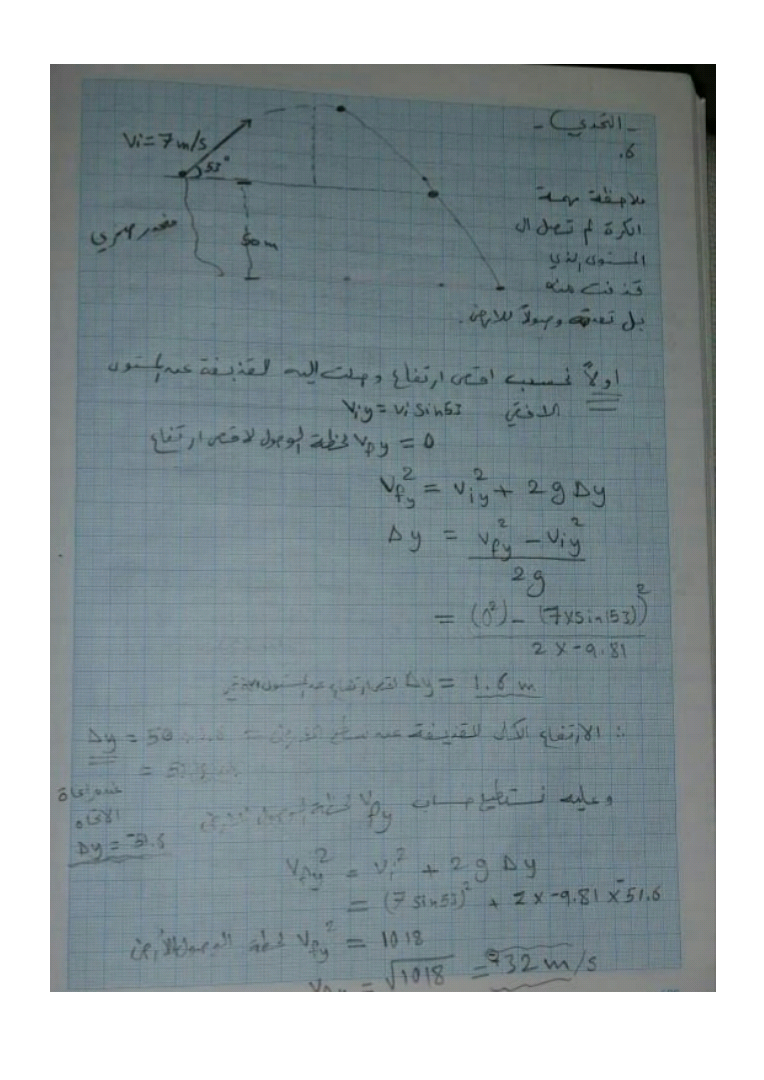 - التحدي -
6.
Vi = 7 m/s
53°
ملاحظة مهمة
الكرة لم تصل ال
المستوى الذي
قذفت منه
بل وصولاً للارض.
منحدر صخري
50 m
اولاً نحسب اقصى ارتفاع وصلت اليه القذيفة عند المستوى
الافقي Viy = Vi Sin53
Vfy = 0 لحظة الوصول لاقصى ارتفاع
Vfy² = Viy² + 2 g Δy
Δy = Vfy² - Viy² / 2g
= (0²) - (7 x sin(53))² / 2 x -9.81
Δy = 1.6 m اقصى ارتفاع عند المستوى
∴ الارتفاع الكلي للقذيفة عند سطح الارض = Δy = 50
عند مراعاة
الاتجاه
وعليه نستطيع حساب Vfy لحظة الوصول للارض
Vfy² = Vi² + 2 g Δy
= (7 sin53)² + 2 x -9.81 x -51.6
Vfy² = 1018 لحظة الوصول للأرض
= √1018 = 32 m/s